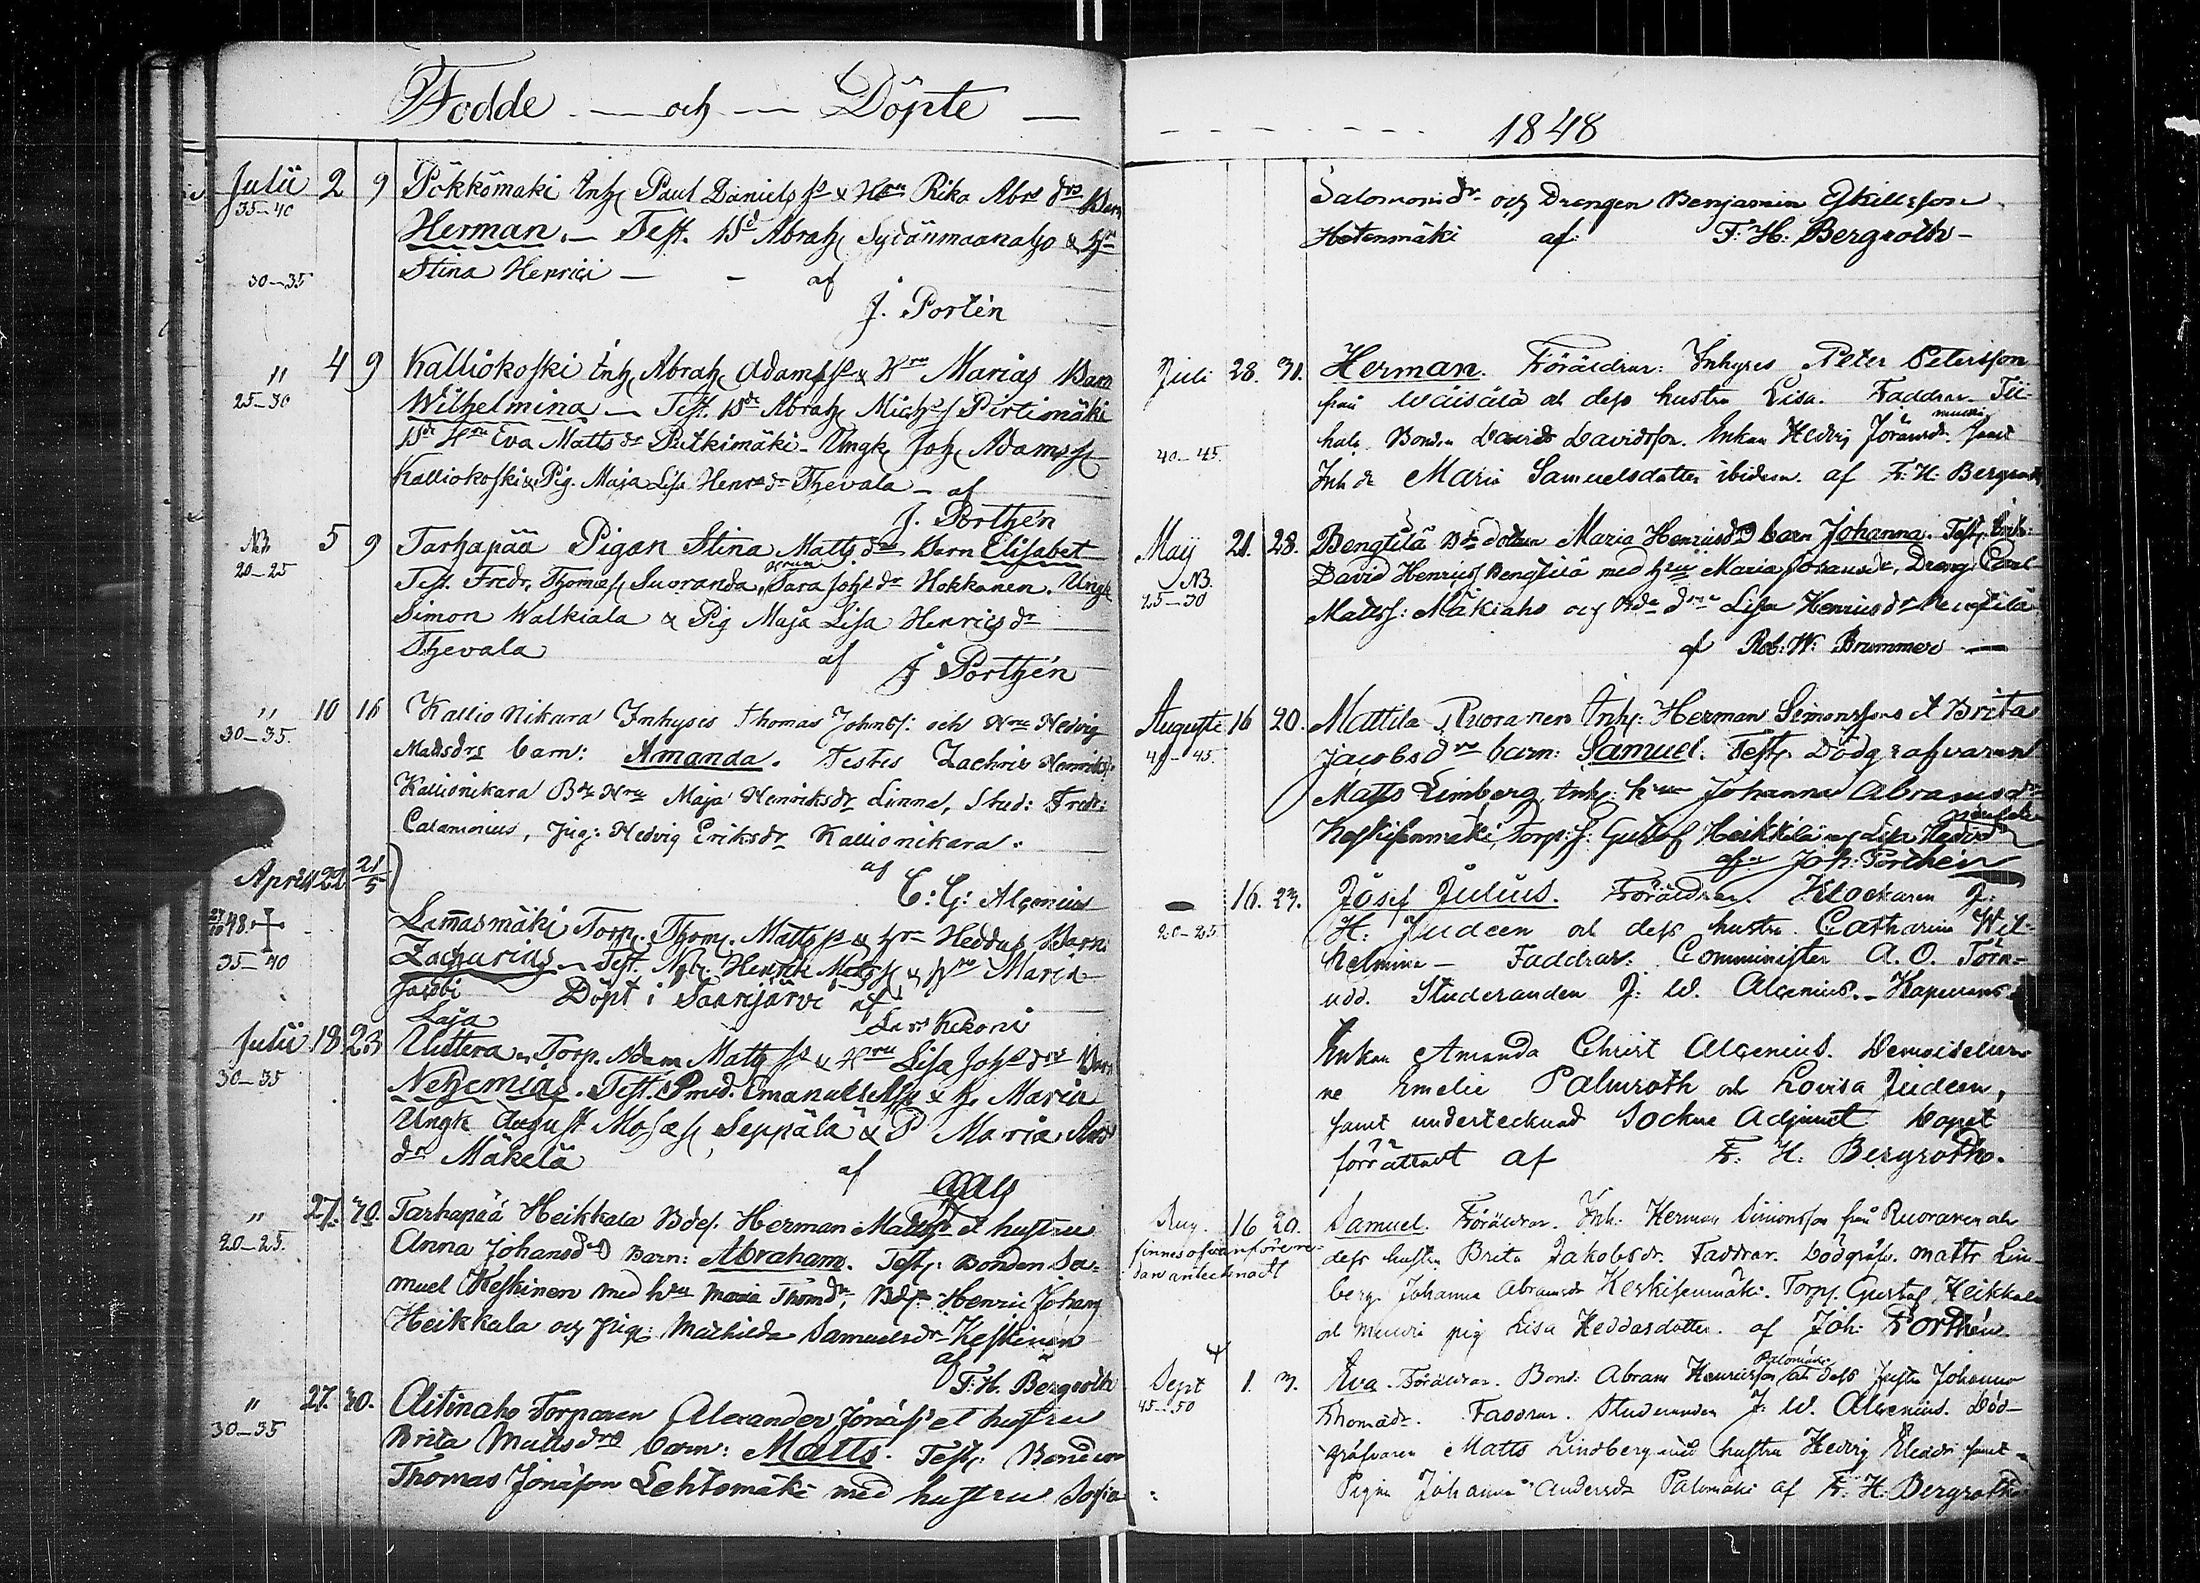 Födde — och — Döpte —
Julii 2 9 Pökkömäki Inh Paul Daniels sn & Hru Rika Abrs drs Barn
35–40 Herman. — Test. Bd Abrah Sydänmaanaho & Hr
30–35 Stina Henrici — – af
J. Portén
" 4 9 Kalliokoski Inh Abrah Adams sn & Hru Marias Barn
25–30 Wilhelmina — Test. Bde Abrah Michs Pirtimäki
Bde Hru Eva Matts dr Putkimäki. Ungk Joh Adams
Kalliokoski & Pig. Maja Lisa Henrs dr Thevala — af
J. Porthén
NB 5 9 Tarhapää Pigan Stina Matts drs Barn Elisabet
20–25 Test. Fredr. Thomæs Suoranda, Sara Johs dr Hokkanen. Ungk
Simon Walkiala & Pig Maja Lisa Henrics dr
Thevala af J Porthén
" 10 16 Kallio Nikara Inhyses Thomas Johns: och Hru Hedvig
30–35. Mattsdrs barn: Amanda. Testes Zachris Henriks:
Kallionikara Bde Hru Maja Henriksdr Linna, Stud: Fredr:
Calamnius, Pig: Hedvig Eriksdr Kallionikara.
af
C: G: Alcenius
April 22 21/5
48. † Lammasmäki Torp. Thom. Matts sn & Hr Heddas Barn
35–40 Zacharias — Test. Nyb. Henrik Matts & Hru Maria
Jacobi Döpt i Saarijärvi af
Laja
Julii 18 23 Uittera Torp. Adam Matts sn & Hru Lisa Johs drs Barn
30–35 Nehemias. Test. & H. Maria
Ungk August Mosæs Seppälä & P Maria
dr Mäkelä af
" 27. 30. Tarhapää Heikkala Bdes. Herman Matts et hustru
20–25. Anna Johansdrs Barn: Abraham. Test: Bonden Sa-
muel Keskinen med hru Maria Thomdr, Bds. Henric Johans
Heikkala och pig: Mathilda Samuelsdr Keskinen
af
F. H. Bergroth
" 27. 30. Aitinaho Torparen Alexander Jonass et hustru
30–35 Brita Matts drs barn: Matts. Test: Bonden
Thomas Jonasson Lehtomäki med hustru Sofia
1848
Salomonsdr och Drengen Benjamin Eskilsson
Hotenmäki af F: H: Bergroth –
Juli 28. 31. Herman. Föräldrar: Inhyses Peter Petersson
från Wäisälä och dess hustru Lisa. Faddrar Tii-
hala Bonden David Davidsson. Enkan Hedvig Jöransdr. samt
40–45. Inh dr Maria Samuelsdotter ibidem. af F. H. Bergroth
Maij 21. 28. Bengtilä Bde dottren Maria Henriksdrs barn Johanna. Test.
NB. David Henriks Bengtilä med Hru Maria Johansdr, Dreng Carl
25–30 Matts: Mäkiaho och Bde dr Lisa Henriksdr Bengtilä
af Rob: W: Brummer —
Auguste 16 20. Mattila Ruoranen Inh: Herman Simonssons et Brita
40–45. Jacobs drs barn: Samuel. Test. Dödgrafvaren
Matts Limberg, Inh: hru Johanna Abramsdr
Keskisenmäki, Torp: s: Gustaf Heikkilä och Lisa Hedd dr
af Joh: Porthén
— 16. 23. Josef Julius. Föräldrar. Klockaren J:
20–25 H: Judeen och dess hustru Catharina Wil-
helmina — Faddrar: Comminister A. O. Törn-
udd. Studeranden J: W. Alcenius. – Kapellans
Enkan Amanda Christ Alcenius. Demoiseller-
ne Emelie Palmroth och Lovisa Judeen,
samt undertecknad Sockne Adjunct Dopet
förrättadt af F: H: Bergroth.
Aug. 16 20. Samuel. Föräldrar. Inh. Herman Simonsson från Ruoranen och
finnes ofvanföre re- dess hustru Brita Jakobsdr. Faddrar. Dödgräfv. Matts Lin-
dan antecknadt berg. Johanna Abramsdr Keskisenmäki. Torp. Gustaf Heikkala
och pig Lisa Heddasdotter. af Joh: Porthén.
Sept 1. 3. Eva. Föräldrar. Bond: Abram Henriksson Palomäki och dess hustru Johanna
45–50 Thomædr. Faddrar. Studeranden J: W. Alcenius. Död-
gräfvaren Matts Lindberg med hustru Hedvig samt
Pigan Johanna Andersdr Palomäki af F. H: Bergroth